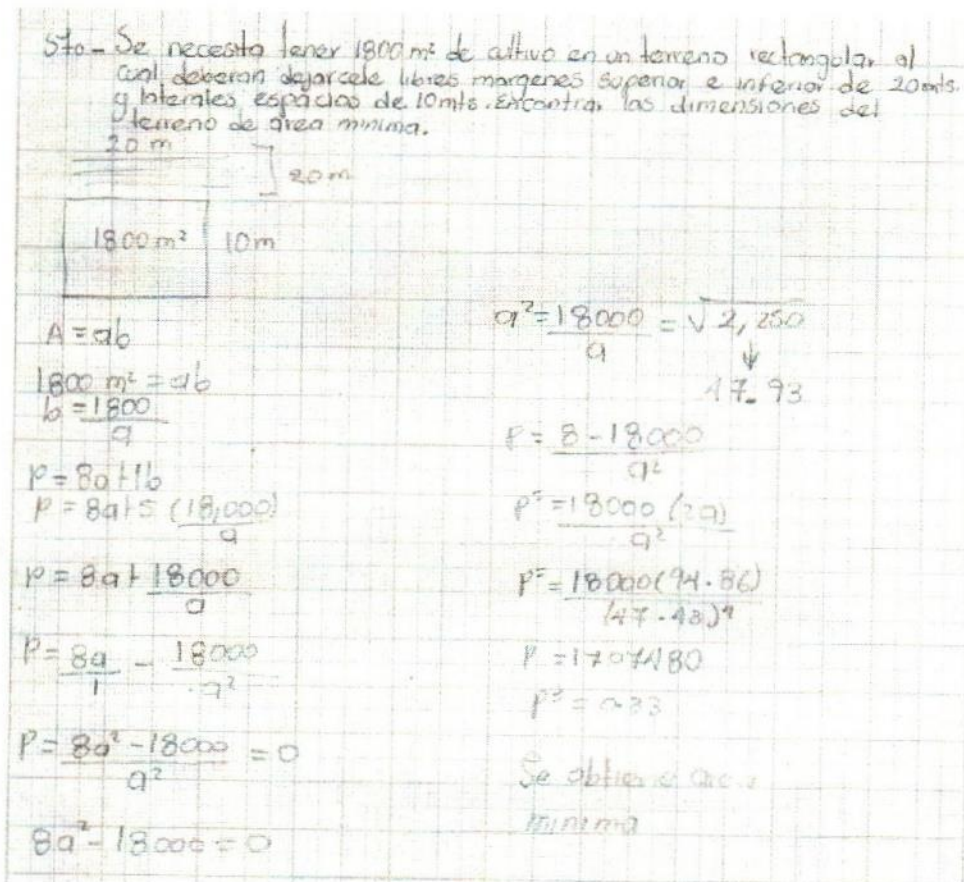 5to - Se necesita tener 1800 m² de cultivo en un terreno rectangular al
cual deberan dejarcele libres margenes superior e inferior de 20 mts.
y laterales espacios de 10 mts. Encontrar las dimensiones del
terreno de area minima.
20 m
20 m
1800 m² 10 m
A = ab
1800 m² = ab
b = 1800
a
P = 8a + 1b
P = 8a + 5 (18,000)
a
P = 8a + 18000
a
P = 8a - 18000
1 a²
P = 8a² - 18000 = 0
a²
8a² - 18000 = 0
a² = 18000 = √2,250
a
↓
47.93
P = 8 - 18000
a²
P = 18000 (2a)
a²
P = 18000 (94.86)
(47.43)⁴
P = 1707480
P = 0.33
Se obtiene area
minima